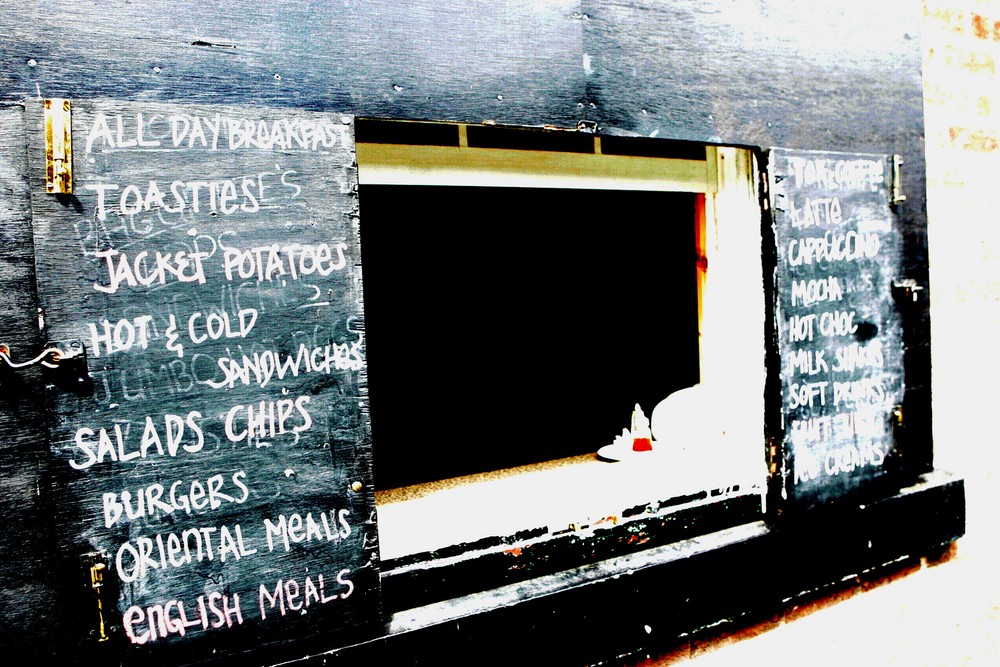 ALL DAY BREAKFAST
TOASTIES
JACKET POTATOES
HOT & COLD
SANDWICHES
SALADS CHIPS
BURGERS
ORIENTAL MEALS
ENGLISH MEALS
LATTE
CAPPUCCINO
MOCHA
HOT CHOC
MILK SHAKES
SOFT DRINKS